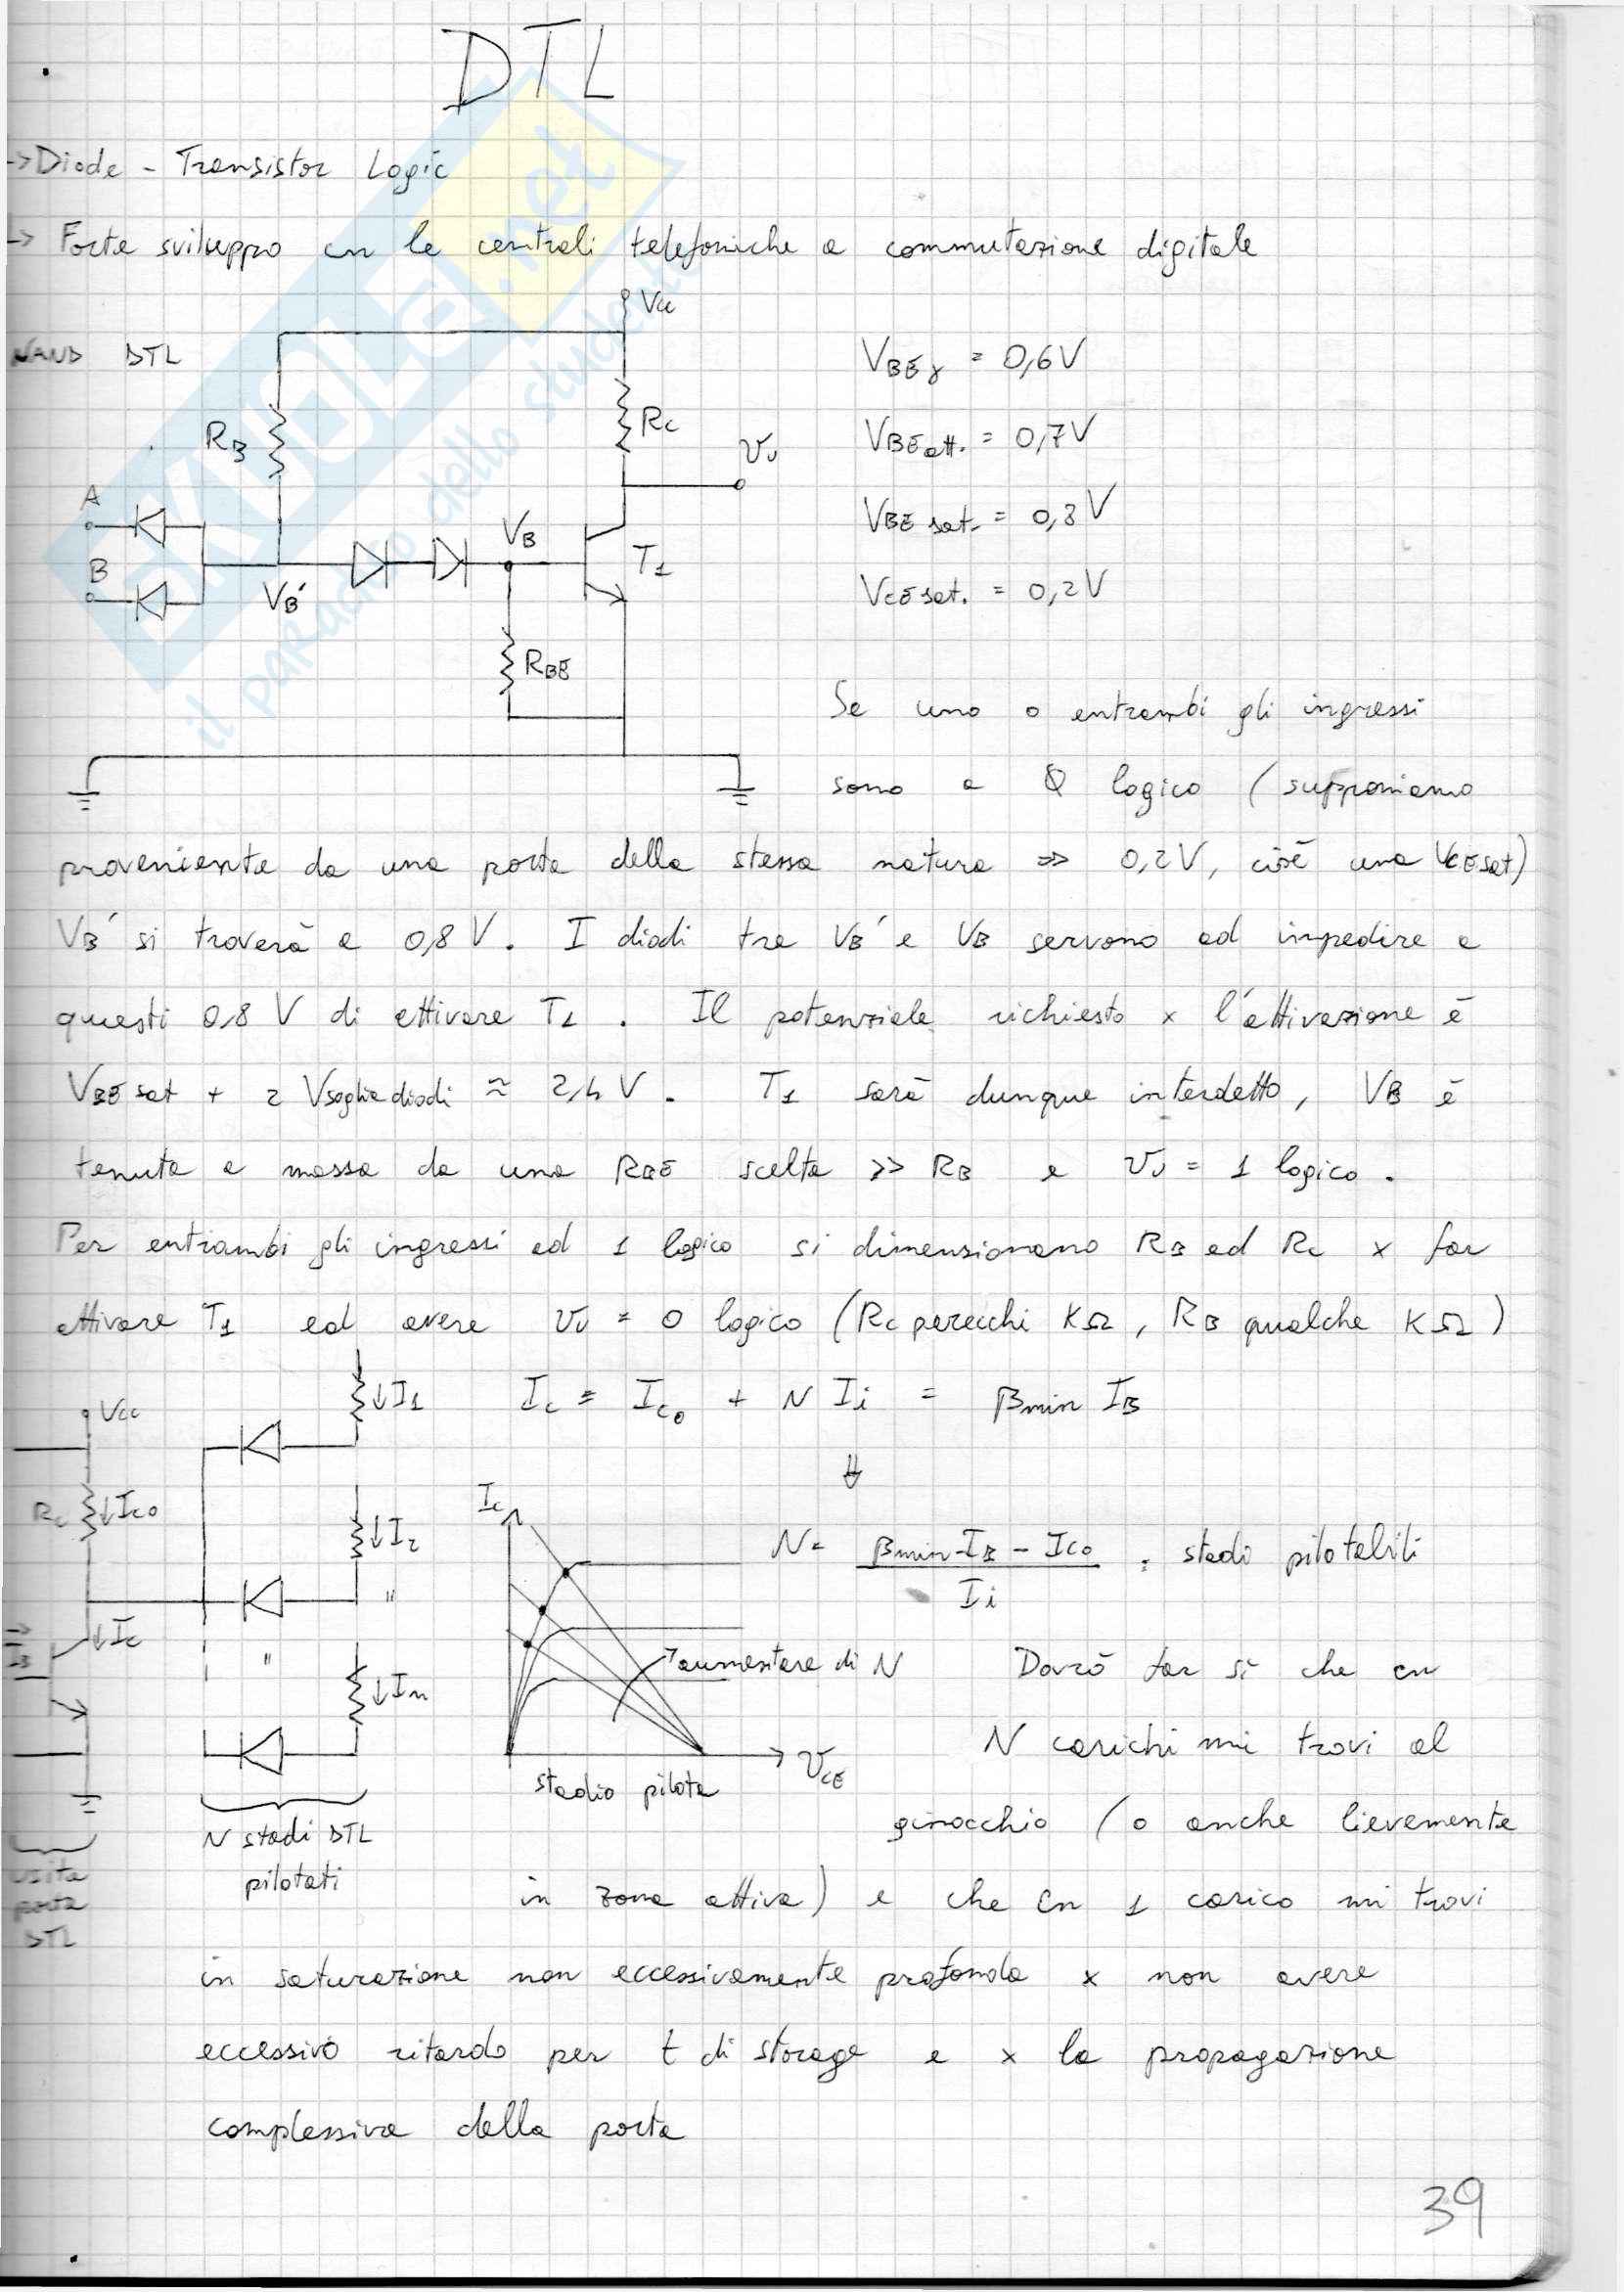 DTL
→ Diode - Transistor Logic
→ Forte sviluppo cn le centrali telefoniche a commutazione digitale
NAND DTL
Vcc
RB
RC
Vu
A
B
VB'
VB
T1
RBE
VBEγ = 0,6V
VBE att. = 0,7V
VBE sat. = 0,8V
VCE sat. = 0,2V
Se uno o entrambi gli ingressi
sono a 0 logico (supponiamo
proveniente da una porta della stessa natura => 0,2V, cioè una VCE sat)
VB' si troverà a 0,8 V. I diodi tra VB' e VB servono ad impedire a
questi 0,8 V di attivare T1. Il potenziale richiesto x l'attivazione è
VBE sat + 2 Vsoglia diodi ≈ 2,4 V. T1 sarà dunque interdetto, VB è
tenuta a massa da una RBE scelta >> RB e Vu = 1 logico.
Per entrambi gli ingressi ad 1 logico si dimensionano RB ed Rc x far
attivare T1 ed avere Vu = 0 logico (Rc parecchi KΩ, RB qualche KΩ)
Ic = Ico + N Ii = βmin IB
⇓
N = (βmin·IB - Ico) / Ii : stadi pilotabili
Vcc
Rc
↓Ico
↓Ic
IB
↓I1
↓I2
"
"
↓In
uscita
porta
DTL
N stadi DTL
pilotati
Ic
VCE
aumentare di N
stadio pilota
Dovrò far sì che cn
N carichi mi trovi al
ginocchio (o anche lievemente
in zona attiva) e che cn 1 carico mi trovi
in saturazione non eccessivamente profonda x non avere
eccessivo ritardo per t di storage e x la propagazione
complessiva della porta
39
il paradiso dello studente
.net